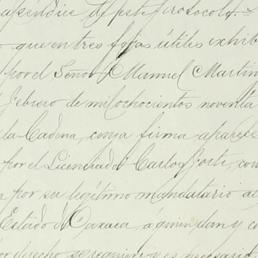 apéndice de este protocolo.
que en tres fojas útiles exhibe
por el Señor Manuel Martin
Febrero de mil ochocientos noventa
la Cadena, cuya firma aparece
por el Licenciado Carlos con
por su legítimo mandatario
Estado de Oaxaca, á quien plan y
derecho se requiere y es necesario